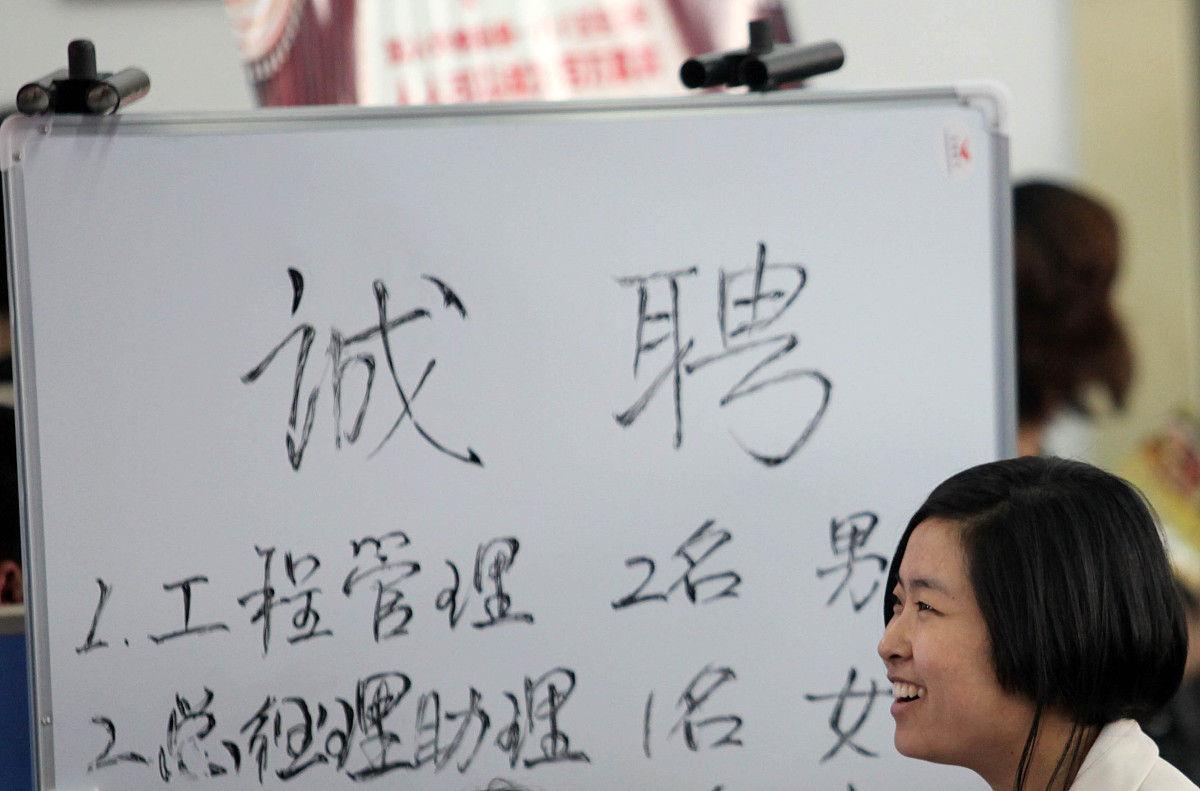 诚 聘
1.工程管理 2名 男
2.总经理助理 1名 女